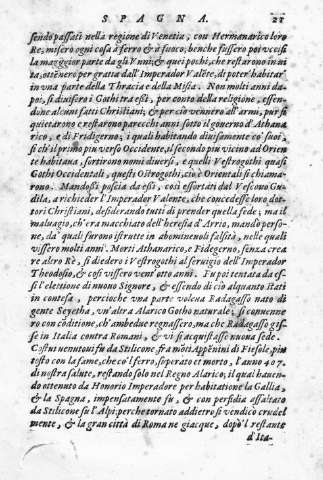 SPAGNA. 21
sendo passati nella regione di Venetia, con Hermanarico loro
Re; misero ogni cosa à ferro & à fuoco; benche fussero poi vccisi
la maggior parte da gli Vnni; & quei pochi, che restarono in ui
ta, ottenero per gratia dall'Imperador Valēte, di poter habitar
in vna parte della Thracia e della Misia. Non molti anni da-
poi, si diuisero i Gothi tra essi, per conto della religione, essen-
done alcuni fatti Christiani; & per ciò venuero all'armi, pur si
quietarono e restarono parecchi anni sotto il gouerno d'Athana
rico, e di Fridigerno; i quali habitando diuisamente co' suoi,
si ch'il primo più verso Occidente, il secondo più vicino ad Orien
te habitana, sortirono nomi diuersi, e quelli Vestrogothi quasi
Gothi Occidentali, questi Ostrogothi, cio è Orientali si chiama
rono. Mandossi poscia da essi, così essortati dal Vescouo Gu-
dila, a richieder l'Imperador Valente, che concedesse loro dot-
tori Christiani, desiderando tutti di prender quella fede; ma il
maluagio, ch'era macchiato dell'heresia d'Arrio, mandò perso-
ne, da' quali furono istrutti in abomineuol falsità, nelle quali
vissero molti anni. Morti Athanarico, e Fidegerno, senza crea
re altro Rè, si diedero i Vestrogothi al seruigio dell'Imperador
Theodosio, & così vissero vent'otto anni. Fu poi tentata da es-
si l'elettione di nuouo Signore, & essendo di ciò alquanto stati
in contesa, percioche vna parte volena Radagasso nato di
gente Seyetha, vn'altra Alarico Gotho naturale; si conuenne
ro con cōditione, ch'ambedue regnassero, ma che Radagasso gis-
se in Italia contra Romani, & vi si acquistasse nuoua sede.
Costui venutoui fu da Stilicone, fra monti Appēnini di Fiesole, piu
tosto con la fame, che co'l ferro, superato e morto, l'anno 407.
di nostra salute, restando solo nel Regno Alarico; il qual hauen-
do ottenuto da Honorio Imperadore per habitatione la Gallia,
& la Spagna, impensatamente fu, & con perfidia assaltato
da Stilicone su l'Alpi: perche tornato addietro si vendicò crudel
mente, & la gran città di Roma ne giacque, dopò'l restante
d'Ita-